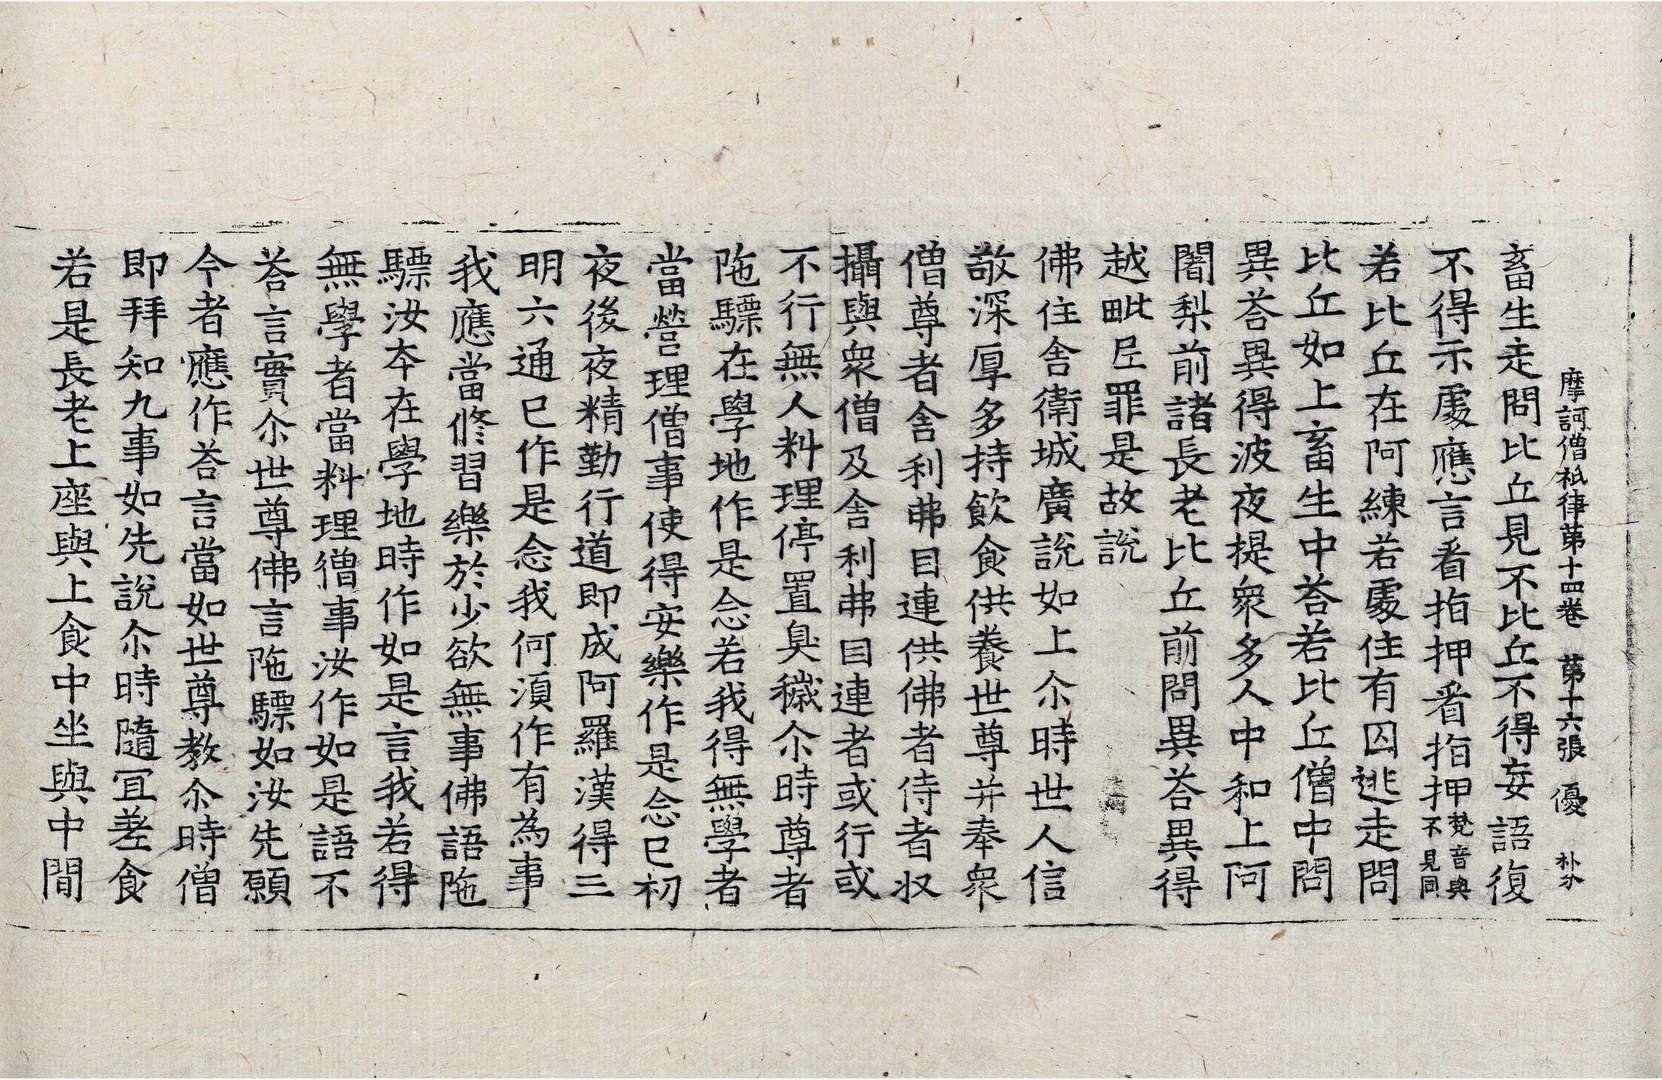 摩訶僧祇律第十四卷　第十六張　優　朴尒
畜生走問比丘見不比丘不得妄語復
不得示處應言看指押看指押梵音與不見同
若比丘在阿練若處住有囚逃走問
比丘如上畜生中荅若比丘僧中問
異荅異得波夜提衆多人中和上阿
闍梨前諸長老比丘前問異荅異得
越毗𡰱罪是故說
佛住舍衛城廣說如上尒時世人信
敬深厚多持飲食供養世尊并奉衆
僧尊者舍利弗目連供佛者侍者収
攝與衆僧及舍利弗目連者或行或
不行無人料理停置臭穢尒時尊者
陁驃在學地作是念若我得無學者
當營理僧事使得安樂作是念已初
夜後夜精勤行道即成阿羅漢得三
明六通已作是念我何須作有為事
我應當修習樂於少欲無事佛語陁
驃汝本在學地時作如是言我若得
無學者當料理僧事汝作如是語不
荅言實尒世尊佛言陁驃如汝先願
今者應作荅言當如世尊教尒時僧
即拜知九事如先說尒時隨冝差食
若是長老上座與上食中坐與中間